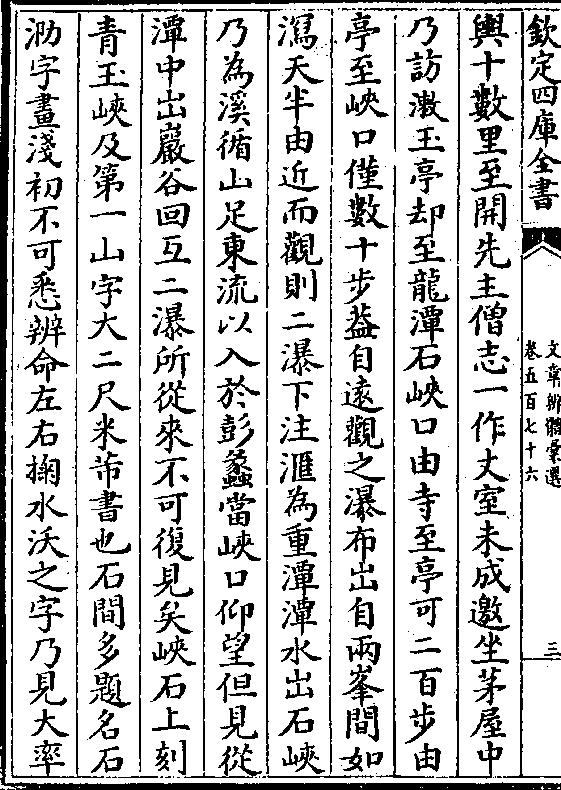 欽定四庫全書
文章辨體彙選
卷五百七十六
三
輿十數里至開先主僧志一作丈室未成邀坐茅屋中
乃訪漱玉亭却至龍潭石峽口由寺至亭可二百步由
亭至峽口僅數十步葢自遠觀之瀑布出自兩峯間如
瀉天半由近而觀則二瀑下注滙為重潭潭水出石峽
乃為溪循山足東流以入於彭蠡當峽口仰望但見從
潭中出巖谷回互二瀑所從來不可復見矣峽石上刻
青玉峽及第一山字大二尺米芾書也石間多題名石
泐字畫淺初不可悉辨命左右掬水沃之字乃見大率